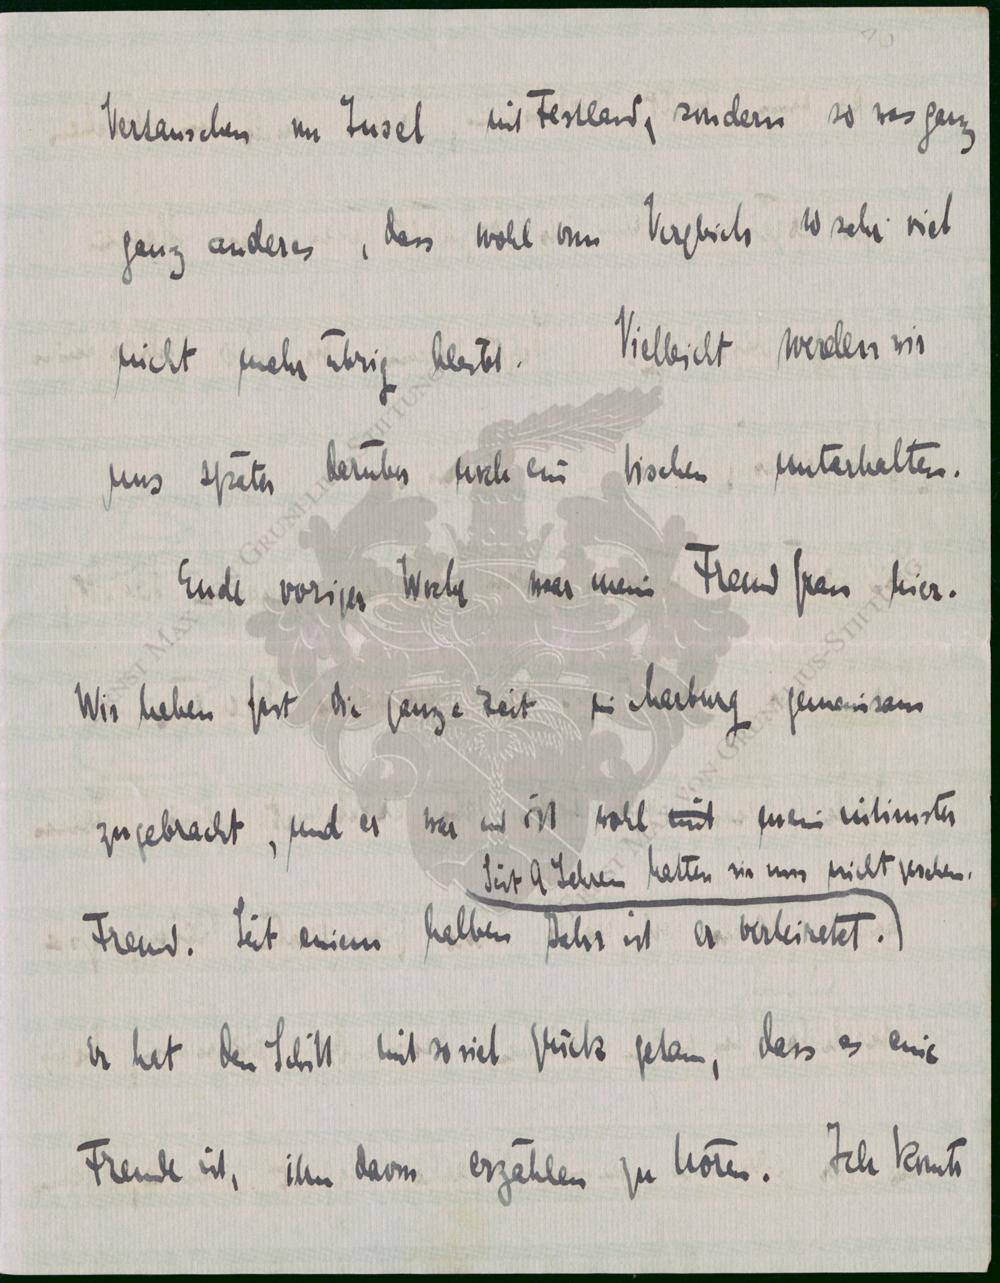 Vertauschen von Insel mit Festland, sondern so was ganz
ganz anderes, dass wohl vom Vergleich so sehr viel
nicht mehr übrig bleibt. Vielleicht werden wir
uns später darüber noch ein bischen unterhalten.
Ende voriger Woche war mein Freund hier.
Wir haben fast die ganze Zeit in Marburg gemeinsam
zugebracht, und er war und ist wohl mit mein intimster
Seit 9 Jahren hatten wir uns nicht gesehen.
Freund. Seit einem halben Jahr ist er verheiratet.)
Er hat den Schritt mit soviel Glück getan, dass es eine
Freude ist, ihn davon erzählen zu hören. Ich konnte
ERNST MAX VON GRUNELIUS-STIFTUNG
ERNST MAX VON GRUNELIUS-STIFTUNG